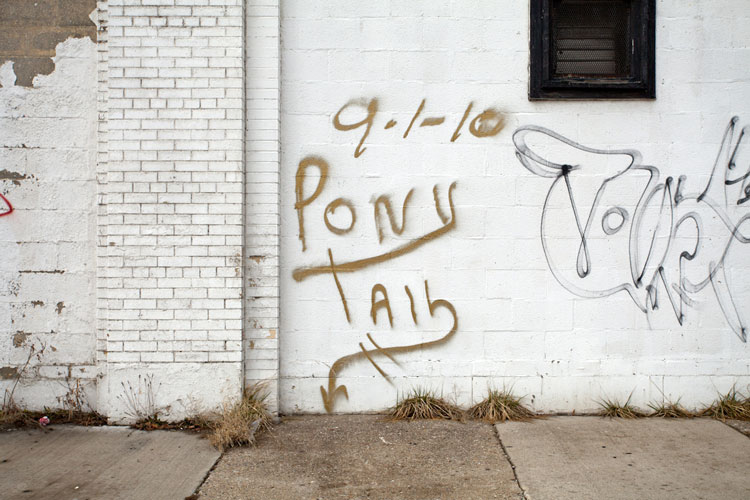 9-1-10
Pony
Tail